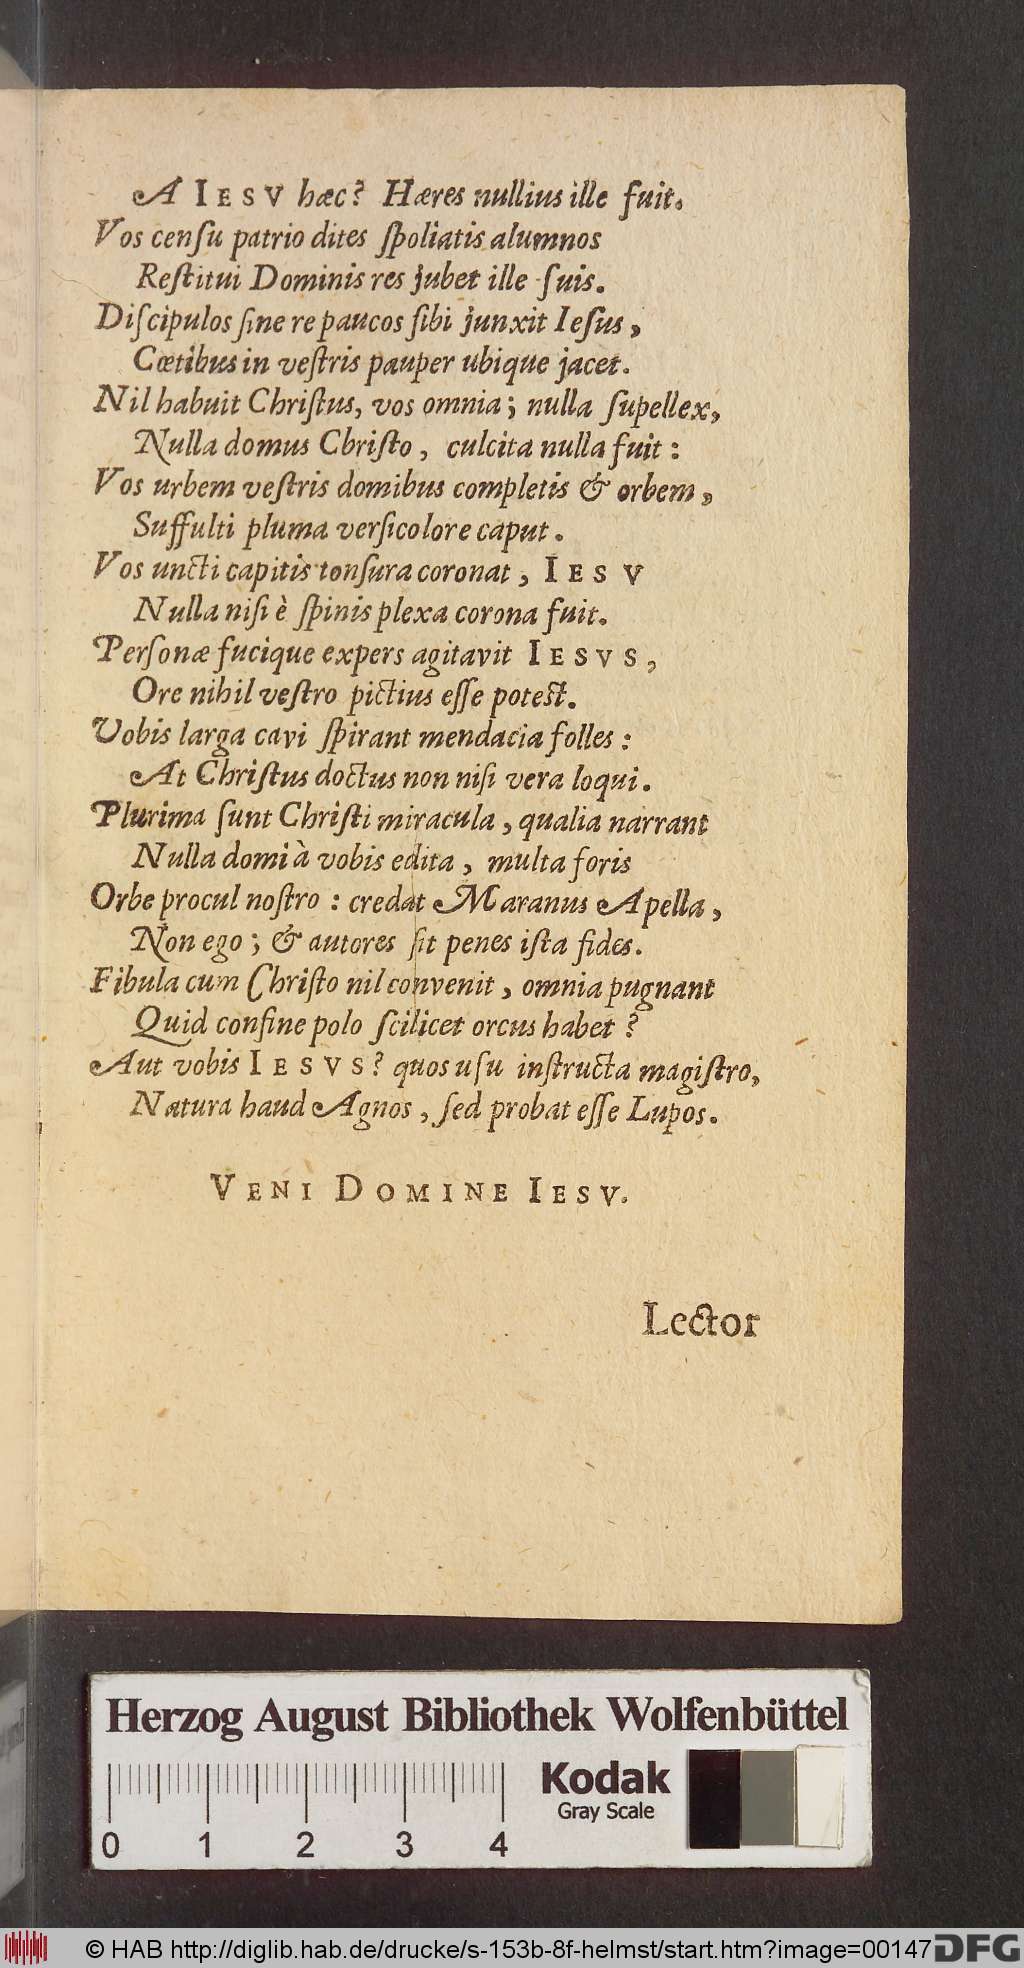 A IESV hæc? Hæres nullius ille fuit.
Vos cenſu patrio dites ſpoliatis alumnos
Reſtitui Dominis res jubet ille ſuis.
Diſcipulos ſine re paucos ſibi junxit Ieſus,
Cœtibus in veſtris pauper ubique jacet.
Nil habuit Chriſtus, vos omnia; nulla ſupellex,
Nulla domus Chriſto, culcita nulla fuit:
Vos urbem veſtris domibus completis & orbem,
Suffulti pluma verſicolore caput.
Vos uncti capitis tonſura coronat, IESV
Nulla niſi è ſpinis plexa corona fuit.
Perſonæ fucique expers agitavit IESVS,
Ore nihil veſtro pictius eſſe poteſt.
Vobis larga cavi ſpirant mendacia folles:
At Chriſtus doctus non niſi vera loqui.
Plurima ſunt Chriſti miracula, qualia narrant
Nulla domi à vobis edita, multa foris
Orbe procul noſtro: credat Maranus Apella,
Non ego; & autores ſit penes iſta fides.
Fibula cum Chriſto nil convenit, omnia pugnant
Quid confine polo ſcilicet orcus habet?
Aut vobis IESVS? quos uſu inſtructa magiſtro,
Natura haud Agnos, ſed probat eſſe Lupos.
VENI DOMINE IESV.
Lector
Herzog August Bibliothek Wolfenbüttel
Kodak
Gray Scale
0 1 2 3 4
© HAB http://diglib.hab.de/drucke/s-153b-8f-helmst/start.htm?image=00147
DFG